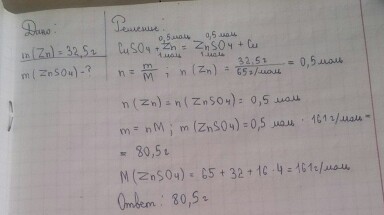 Дано:
m(Zn) = 32,5г
m(ZnSO4) - ?
Решение:
0,5 моль 0,5 моль
CuSO4 + Zn = ZnSO4 + Cu
1 моль 1 моль
n = m/M ; n(Zn) = 32,5г/65г/моль = 0,5 моль
n(Zn) = n(ZnSO4) = 0,5 моль
m = nM ; m(ZnSO4) = 0,5 моль · 161г/моль =
= 80,5г
M(ZnSO4) = 65 + 32 + 16·4 = 161г/моль
Ответ: 80,5г